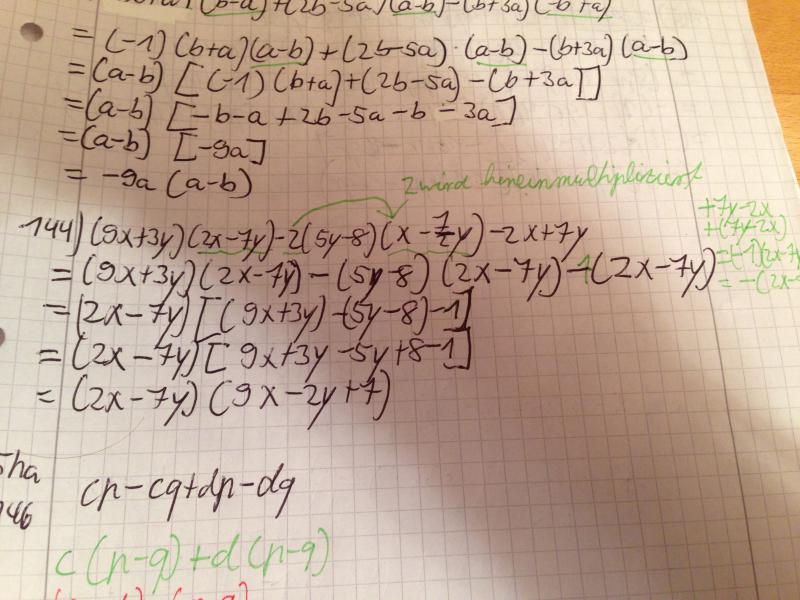 (b-a)+(2b-5a)(a-b)-(b+3a)(-b+a)
= (-1)(b+a)(a-b)+(2b-5a)·(a-b)-(b+3a)(a-b)
=(a-b) [(-1)(b+a)+(2b-5a)-(b+3a)]
=(a-b) [-b-a+2b-5a-b-3a]
=(a-b) [-9a]
= -9a (a-b)
2 wird hineinmultipliziert
144) (9x+3y)(2x-7y)-2(5y-8)(x-7/2y)-2x+7y
+7y-2x
+(7y-2x)
= (9x+3y)(2x-7y)-(5y-8)(2x-7y)-1(2x-7y)
=(-1)(2x-7y
= -(2x-
=(2x-7y)[(9x+3y)-(5y-8)-1]
=(2x-7y)[9x+3y-5y+8-1]
= (2x-7y)(9x-2y+7)
5ha
146
cp-cq+dp-dq
c(p-q)+d(p-q)